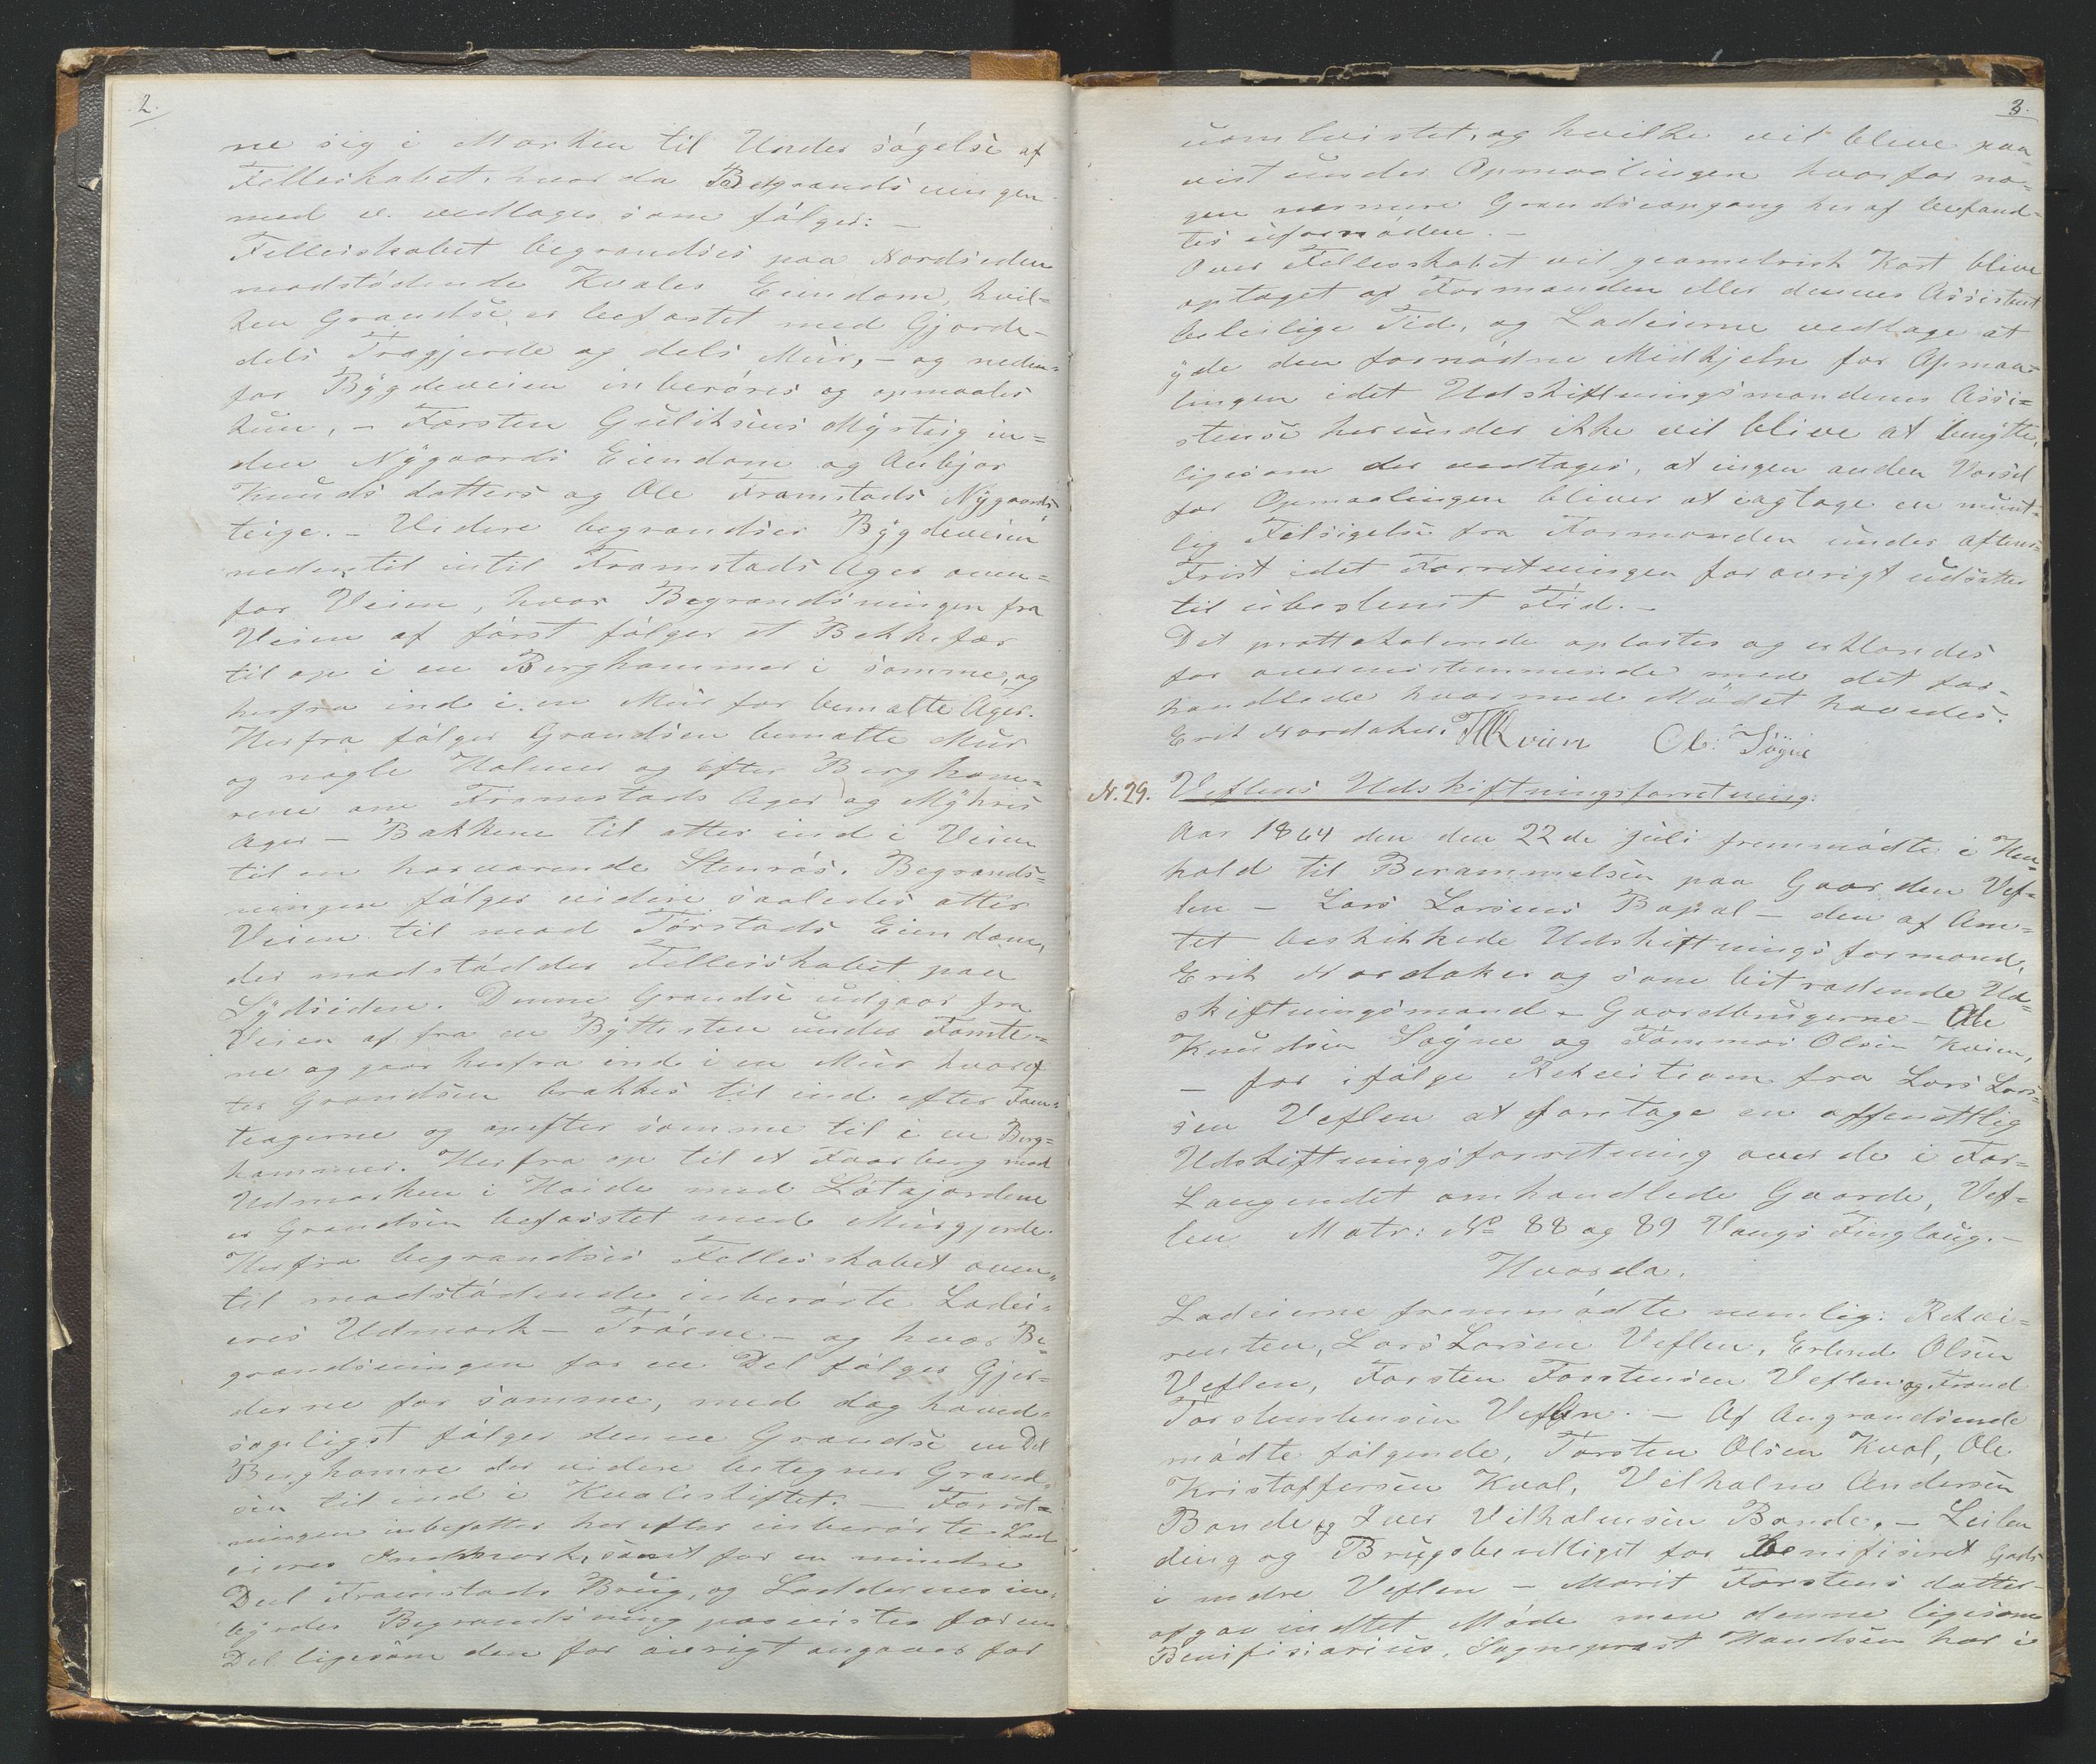 2.
ne sig i Marken til Undersøgelse af
Felleskabet, hvor da Begrændsningen
med v. vedtoges som følger: —
Felleiskabet begrændses paa Nordsiden
modstødende Kvales Eiendom, hvil-
ken Grændse er befæstet med Gjærde-
dels Trægjerde og dels Mur, — og neden-
for Bygdeveien inberøres og opmaales
kun, — Torsten Guliksens Myrteig in-
den Nygaards Eiendom og Anbjør
Knudsdatters og Ole Framstads Nygaards
teige. — Videre begrændser Bygdeveien
nedentil intil Framstads Ager oven-
for Veien, hvor Begrændsningen fra
Veien af først følger et Bekkefar
til op i en Berghammer i samme, og
herfra ind i en Mur for bemælte Ager.
Herfra følger Grændsen bemælte Mur
og nogle Holmer og efter Bergham-
rene om Framstads Ager og Myhres
Ager — Bakkene til atter ind i Veien
til en hosværende Stenrøs. Begrænds-
ningen følger videre saaledes atter
Veien til mod Tørstads Eiendom,
der modstødder Felleiskabet paa
Sydsiden. Denne Grændse udgaar fra
Veien af fra en Byttesten under Tomte-
ne og gaar herfra ind i en Mur hvoref
ter Grændsen brækkes til ind efter Tom-
teagerne og opefter samme til i en Berg-
hammer. Herfra op til et Faarberg mod
Udmarken i Høide med Løtajordene
er Grændsen befæstet med Murgjerde.
Herfra begrændses Felleiskabet oven-
til modstødende inberørte Lodei-
eres Udmark — Trøene — og hvor Be-
grændsningen for en Del følger Gjer-
derne for samme, med dog hoved-
sageligst følger denne Grændse en Del
Berghamre der videre betegner Grænd-
sen til ind i Kvaleskiftet. — Forret-
ningen inbefatter herefter inberørte Lod
eieres Indmark, samt for en mindre
Deel Framstads Brug, og Loddernes in-
byrdes Begrændsning paavistes for en
Del ligesom den for øvrigt angaves for
3.
uomtvistet, og hvilke vil blive paa-
vist under Opmaalingen hvorfor no-
gen nærmere Grændseopgang heraf befand-
tes ufornøden. —
Over Fellesskabet vil geometrisk Kart blive
optaget af Formanden eller dennes Assistent
beleilige Tid, og Lodeierne vedtage at
yde den fornødne Midhjelp for Opmaa-
lingen idet Udskiftningsmændenes Assi-
stense herunder ikke vil blive at benytte,
ligesom der vedtages, at ingen anden Varsel
for Opmaalingen bliver at iagtage en munt-
lig Tilsigelse fra Formanden under Aftens-
Frist idet Forretningen for øvrigt udsattes
til ubestemt Tid. —
Det prottokolerede oplæstes og erklæredes
for overenstemmende med det for-
handlede hvormed Mødet hævedes.
Erik Nordaker. TO Kvien Ol: Søgne
N. 29. Veflens Udskiftningsforretning:
Aar 1864 den den 22de Juli fremmødte i Hen-
hold til Berammelsen paa Gaarden Vef-
len — Lars Larsens Bopæl — den af Am-
tet beskikkede Udskiftningsformand,
Erik Nordaker og som bitrædende Ud-
skiftningsmænd — Gaardbrugerne — Ole
Knudsen Søgne og Tommas Olsen Kvien,
— for ifølge Rekvisition fra Lars Lar-
sen Veflen at foretage en offenttlig
Udskiftningsforretning over de i For-
langendet omhandlede Gaarde, Vef-
len Matr: No 88 og 89 Vangs Tinglaug. —
Hvorda.
Lodeierne fremmødte nemlig: Rekvi-
renten, Lars Larsen Veflen, Erlend Olsen
Veflen, Torsten Torstensen Veflen og Trond
Torstenstensen Veflen. — Af Angrændsende
mødte følgende, Torsten Olsen Kval, Ole
Kristoffersen Kval, Velhalm Andersen
Bonde, og Iver Vilhalmsen Bonde. — Leilen
ding og Brugsberettiget for Benifiseret Gods
i nedre Veflen — Marit Torstens datter
afgav indtet Møde men denne ligesom
Benifisiarius, Sogneprest Handsen har i